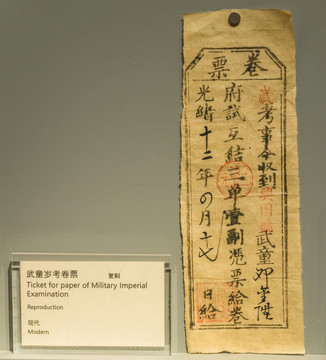 票卷
歲考事今收到興國州武童鄧蓂陞
府試互結三单壹副憑票給卷
光緒十二年四月十七日給
武童岁考卷票 复制
Ticket for paper of Military Imperial
Examination
Reproduction
现代
Modern